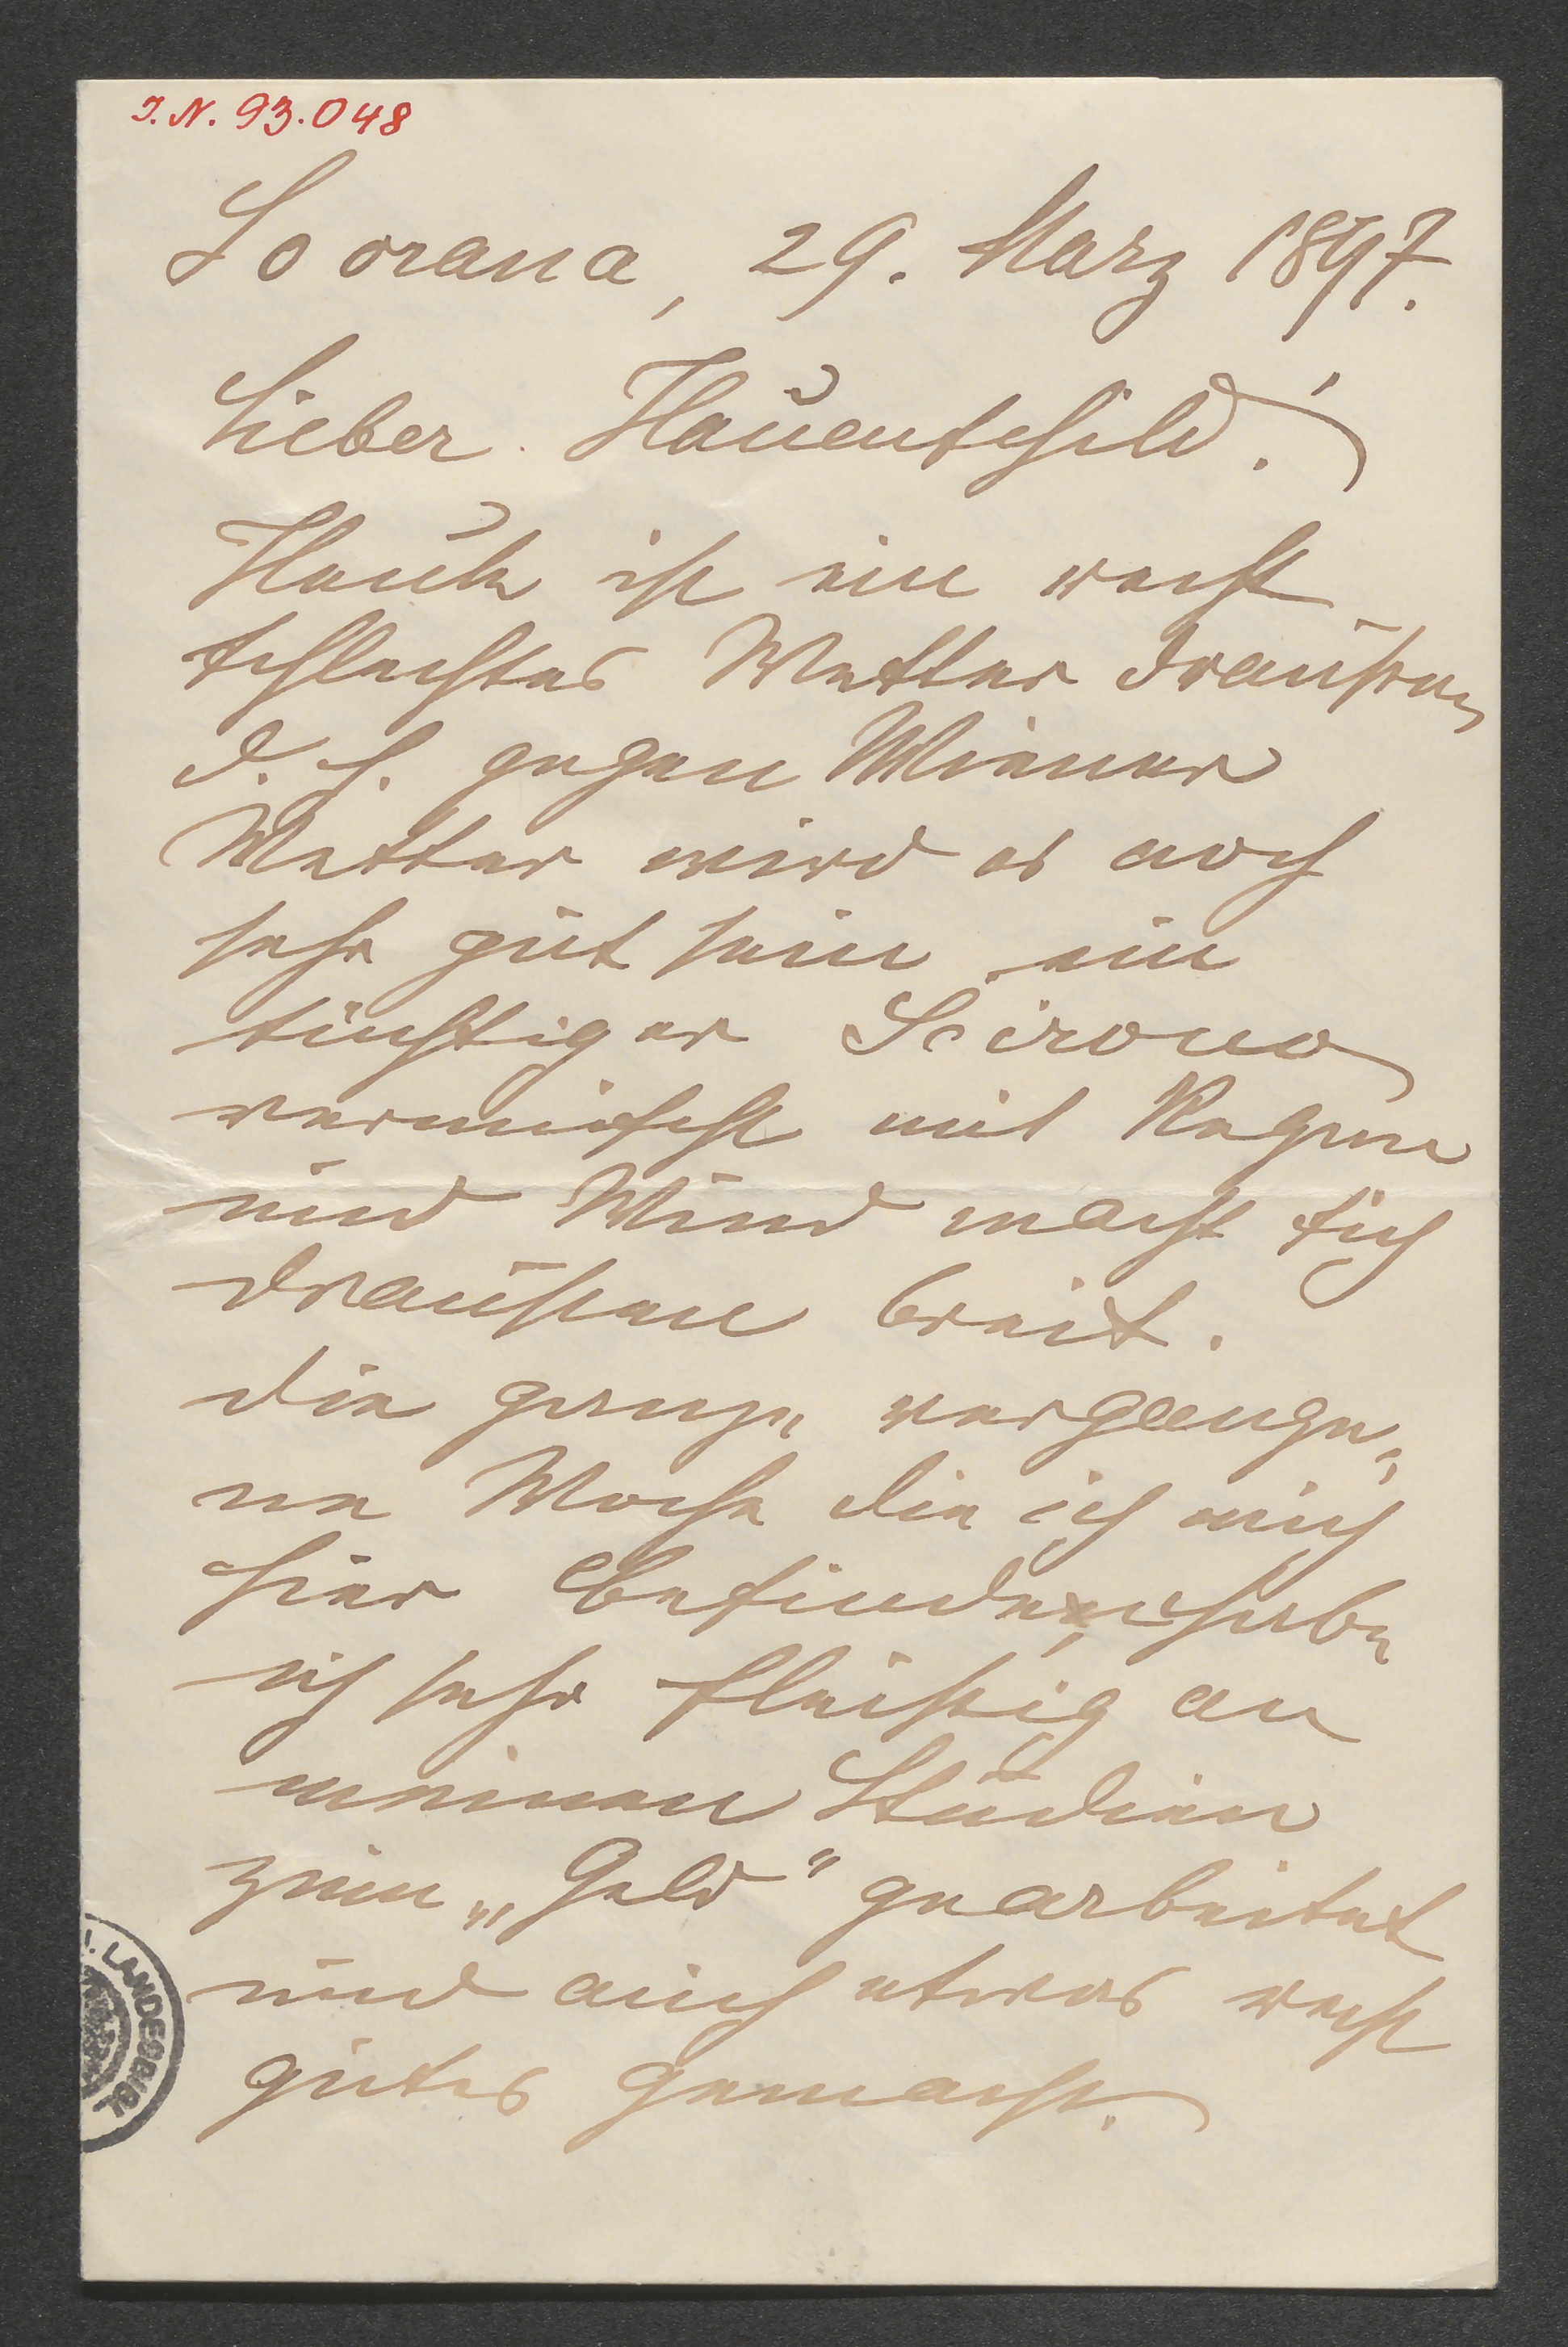 I. N. 93.048
Lovrana, 29. März 1897.
Lieber Hauenschild!
Heute ist ein recht
schlechtes Wetter draußen,
d. h. gegen Wiener
Wetter wird es noch
sehr gut sein, ein
tüchtiger Scirocco
vermischt mit Regen
und Wind macht sich
draußen breit.
Die ganze vergange„
ne Woche die ich mich
hier befinde, habe
ich sehr fleißig an
meinen Studien
zum „Geld“ gearbeitet
und auch etwas recht
gutes gemacht.
LANDESBIBL